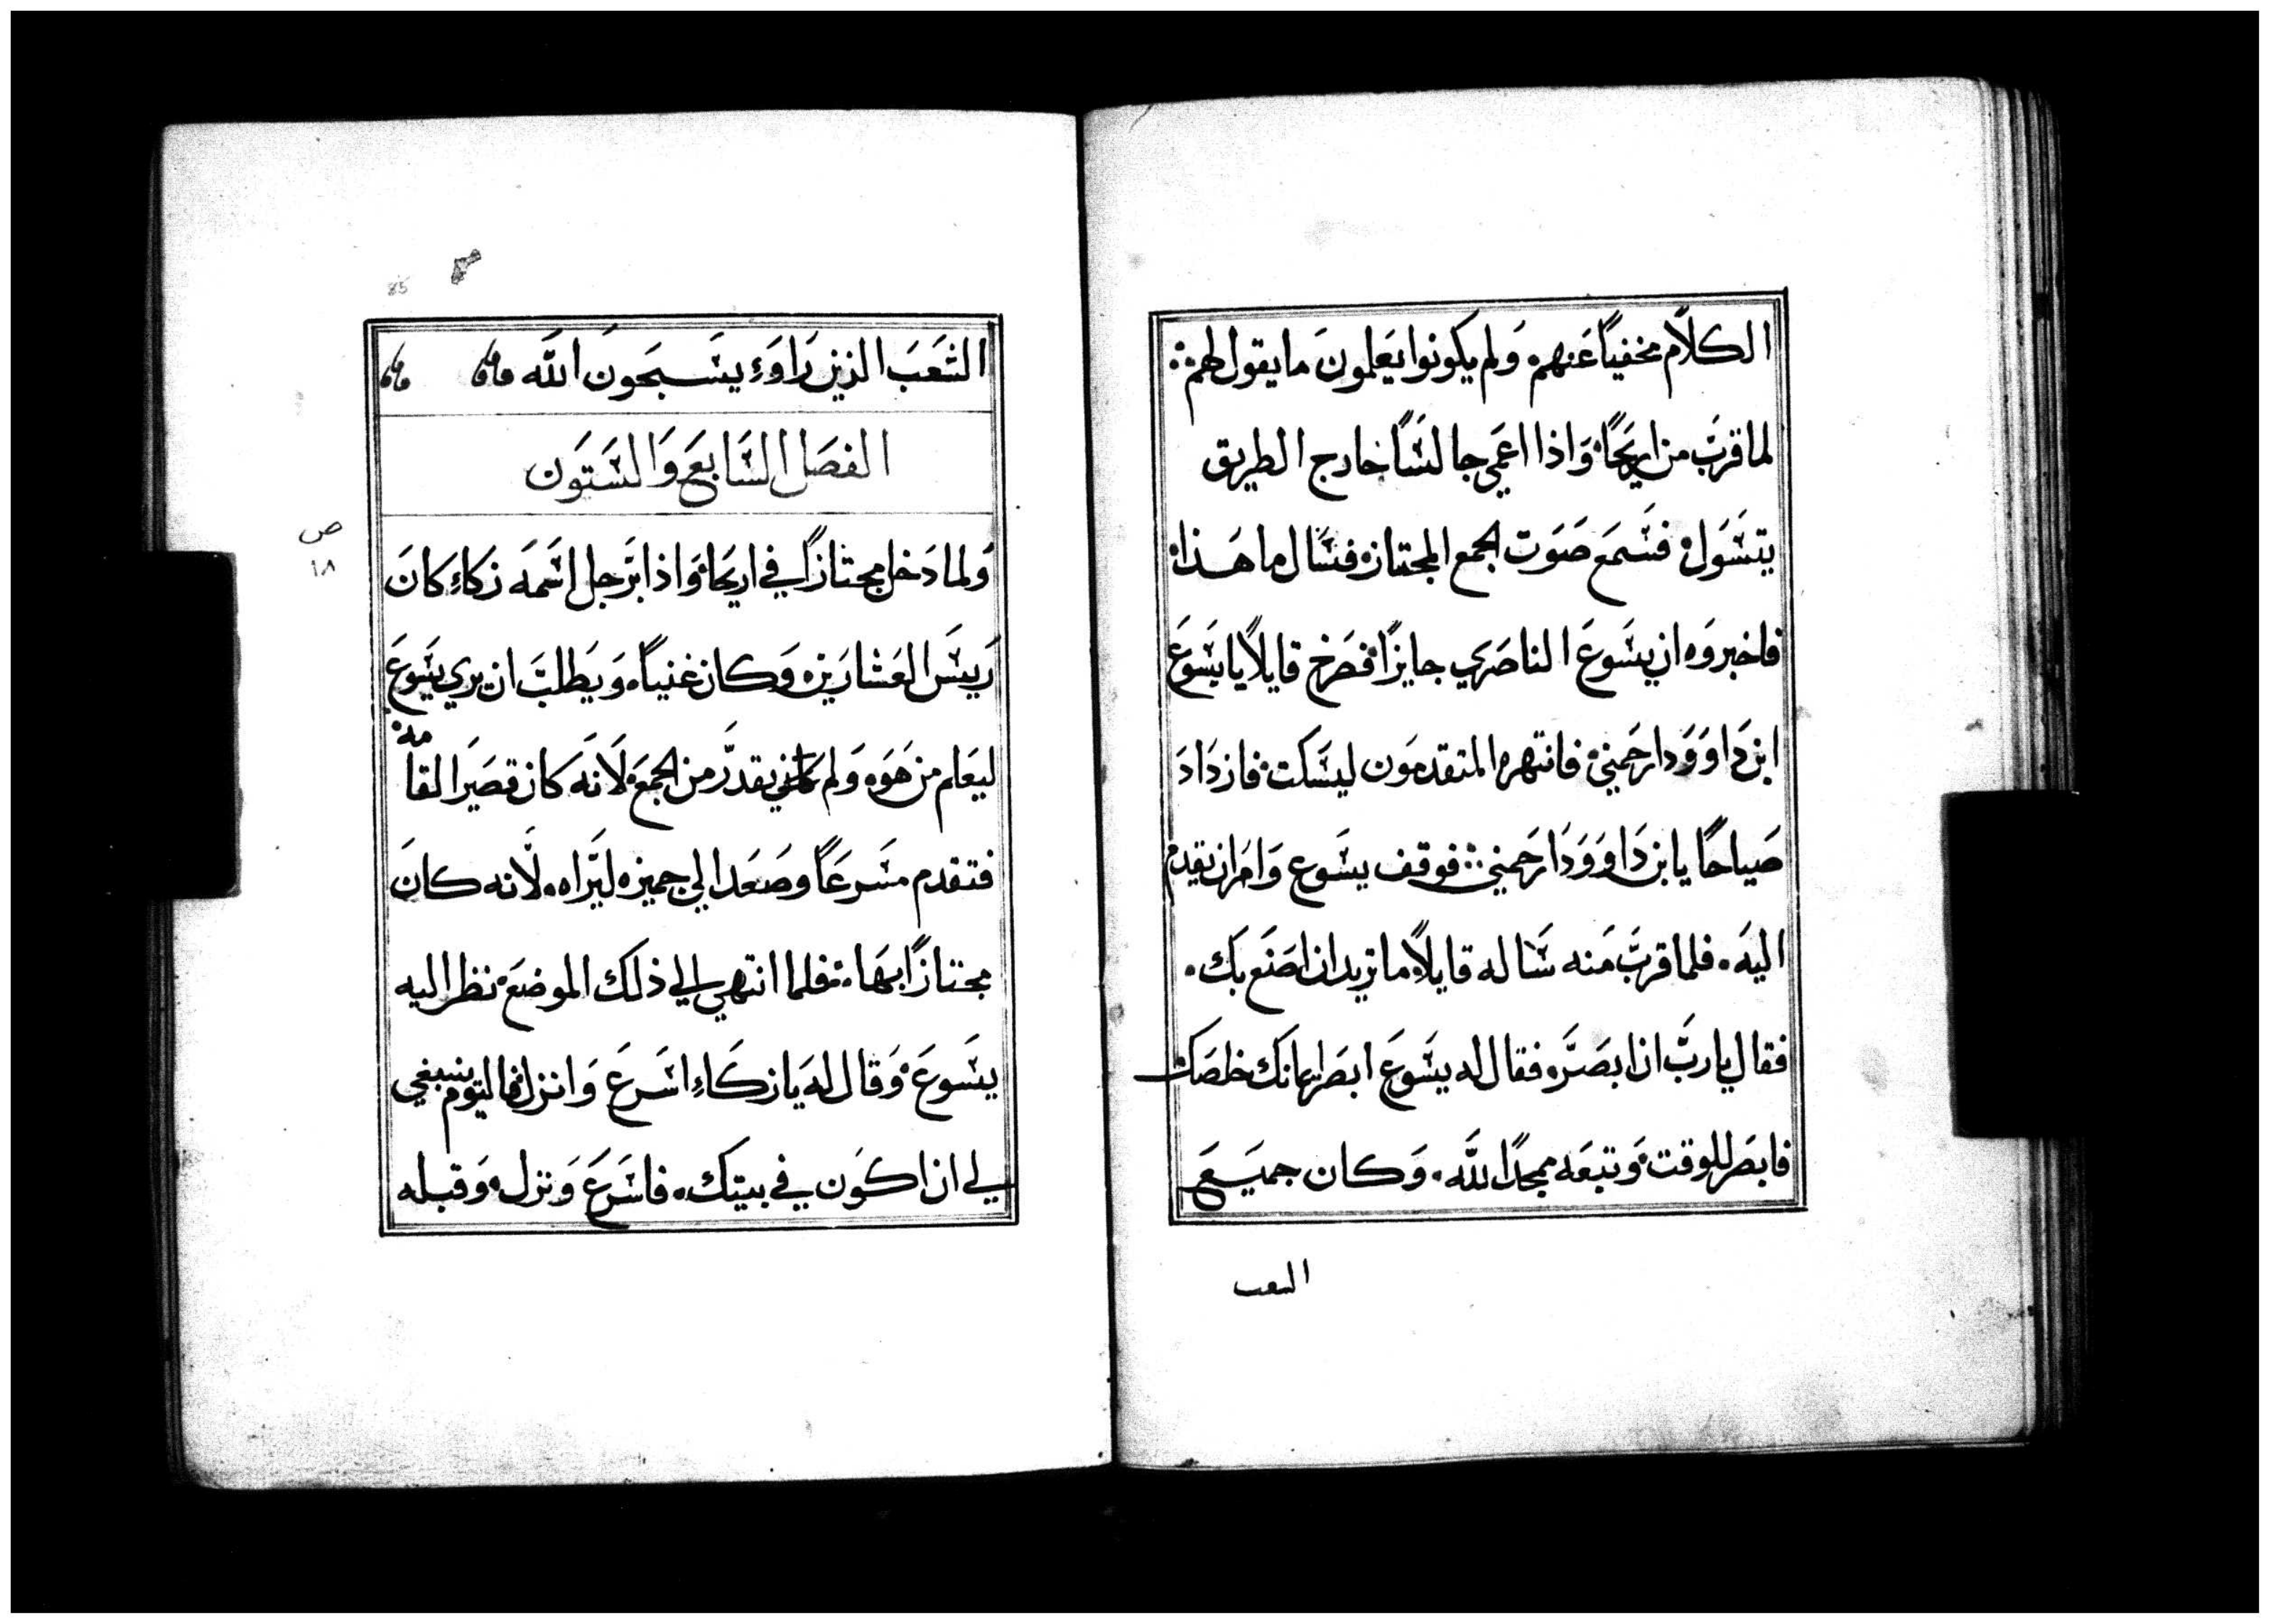 الكلام مخفياً عنهم. ولم يكونوا يعلمون ما يقول لهم:.
لما قرب من اريحا. واذا اعمي جالساً خارج الطريق
يتسول. فسمع صوت الجمع المجتازه فسال ما هذا.
فاخبروه ان يسوع الناصري جايزاً. فصرخ قايلاً يا يسوع
ابن داوود ارحمني. فانتهره المتقدمون ليسكت. فازداد
صياحاً يا ابن داوود ارحمني:. فوقف يسوع وامر ان يقدم
اليه. فلما قرب منه ساله قايلاً. ما تريد ان اصنع بك.
فقال يا رب ان ابصر. فقال له يسوع ابصر ايمانك خلصك
فابصر للوقت. وتبعه ممجداً لله. وكان جميع
الشعب
85
الشعب الذين راوء يسبحون الله
الفصل السابع والستون
ص
١٨
ولما دخل مجتازاً في اريحا. واذا برجل اسمه زكاء كان
رييس العشارين. وكان غنياً. ويطلب ان يري يسوع
ليعلم من هو. ولم يقدر من الجمع. لانه كان قصير القامه
فتقدم مسرعاً وصعد الي جميزه ليراه. لانه كان
مجتازاً بها:. فلما انتهي الي ذلك الموضع. نظر اليه
يسوع. وقال له يا زكاء اسرع وانزل فاليوم ينبغي
لي ان اكون في بيتك. فاسرع ونزل. وقبله